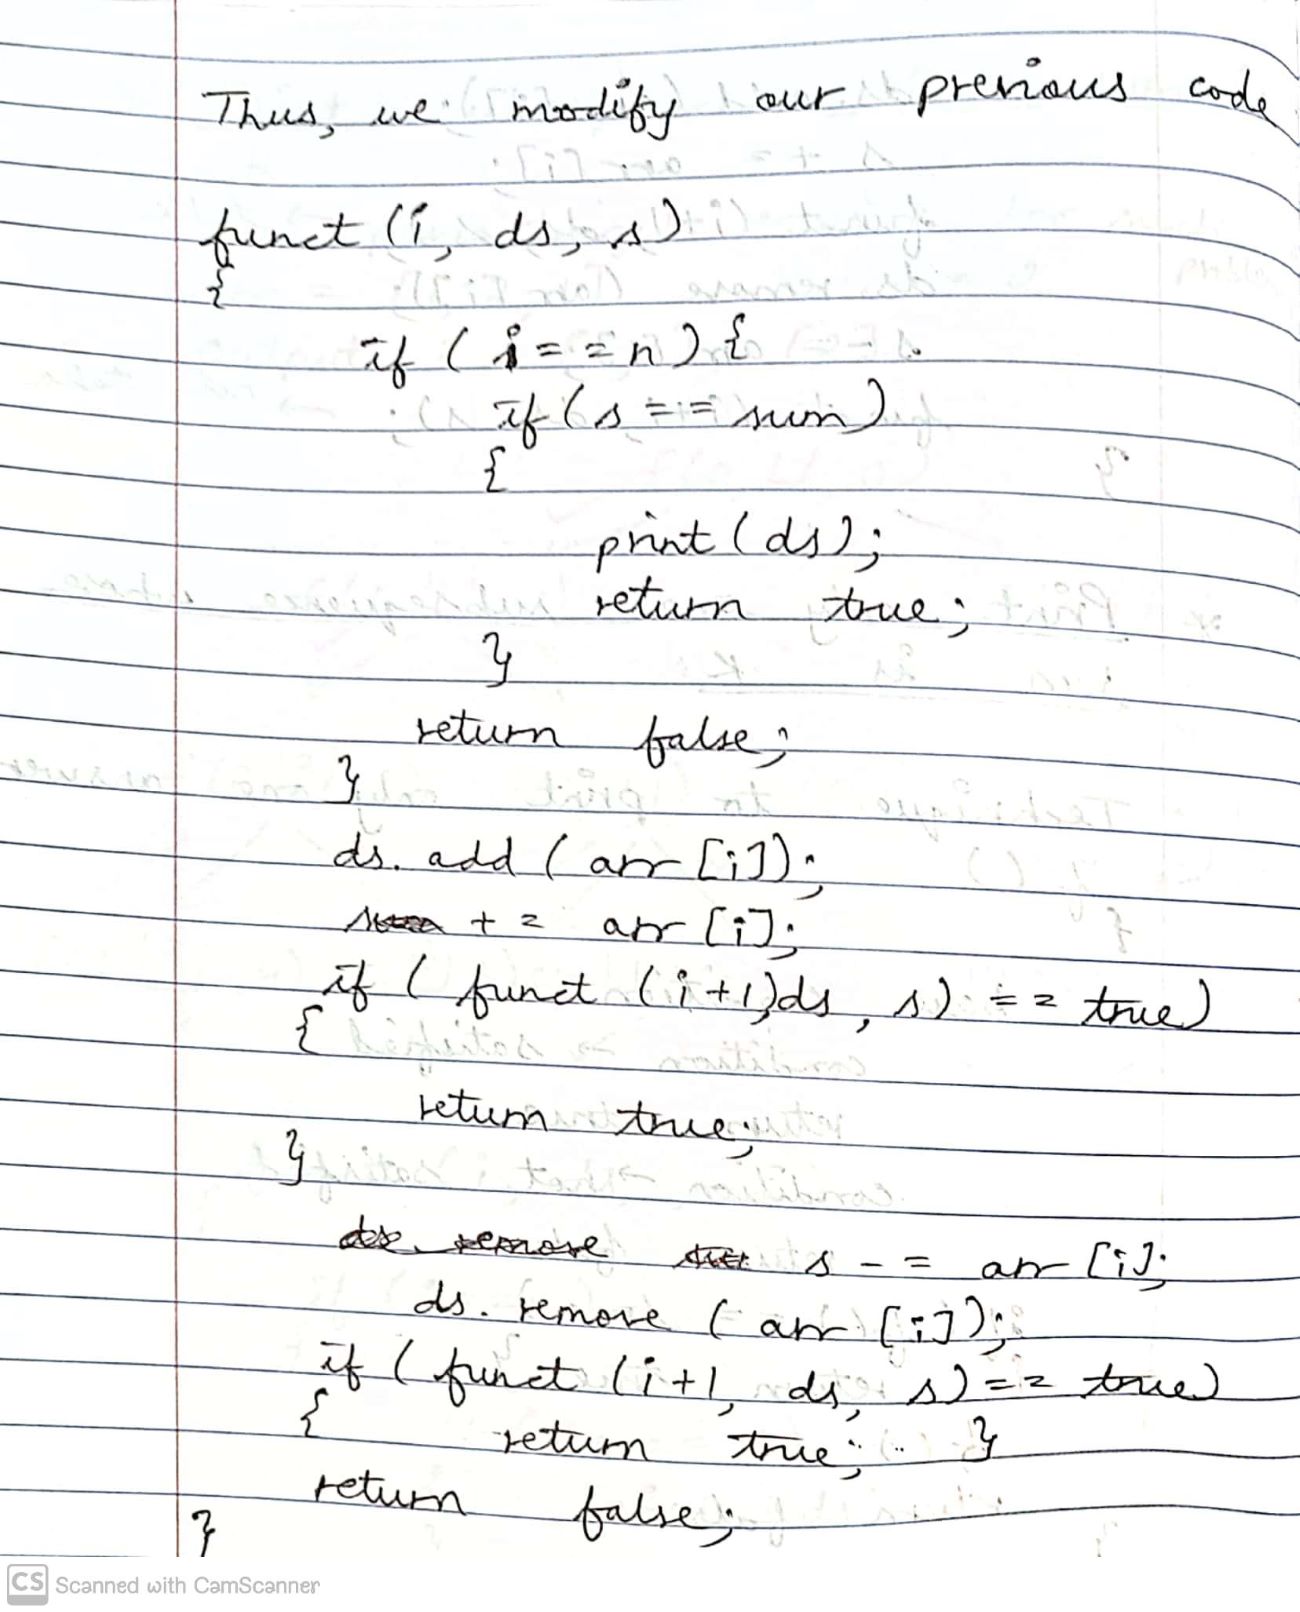 Thus, we modify our previous code
funct (i, ds, s)
{
if (i == n) {
if (s == sum)
{
print (ds);
return true;
}
return false;
}
ds. add (arr [i]);
s += arr [i];
if ( funct (i+1, ds, s) == true)
{
return true;
}
ds. remove s -= arr [i];
ds. remove ( arr [i]);
if ( funct (i+1, ds, s) == true)
{ return true; }
return false;
}
CS Scanned with CamScanner